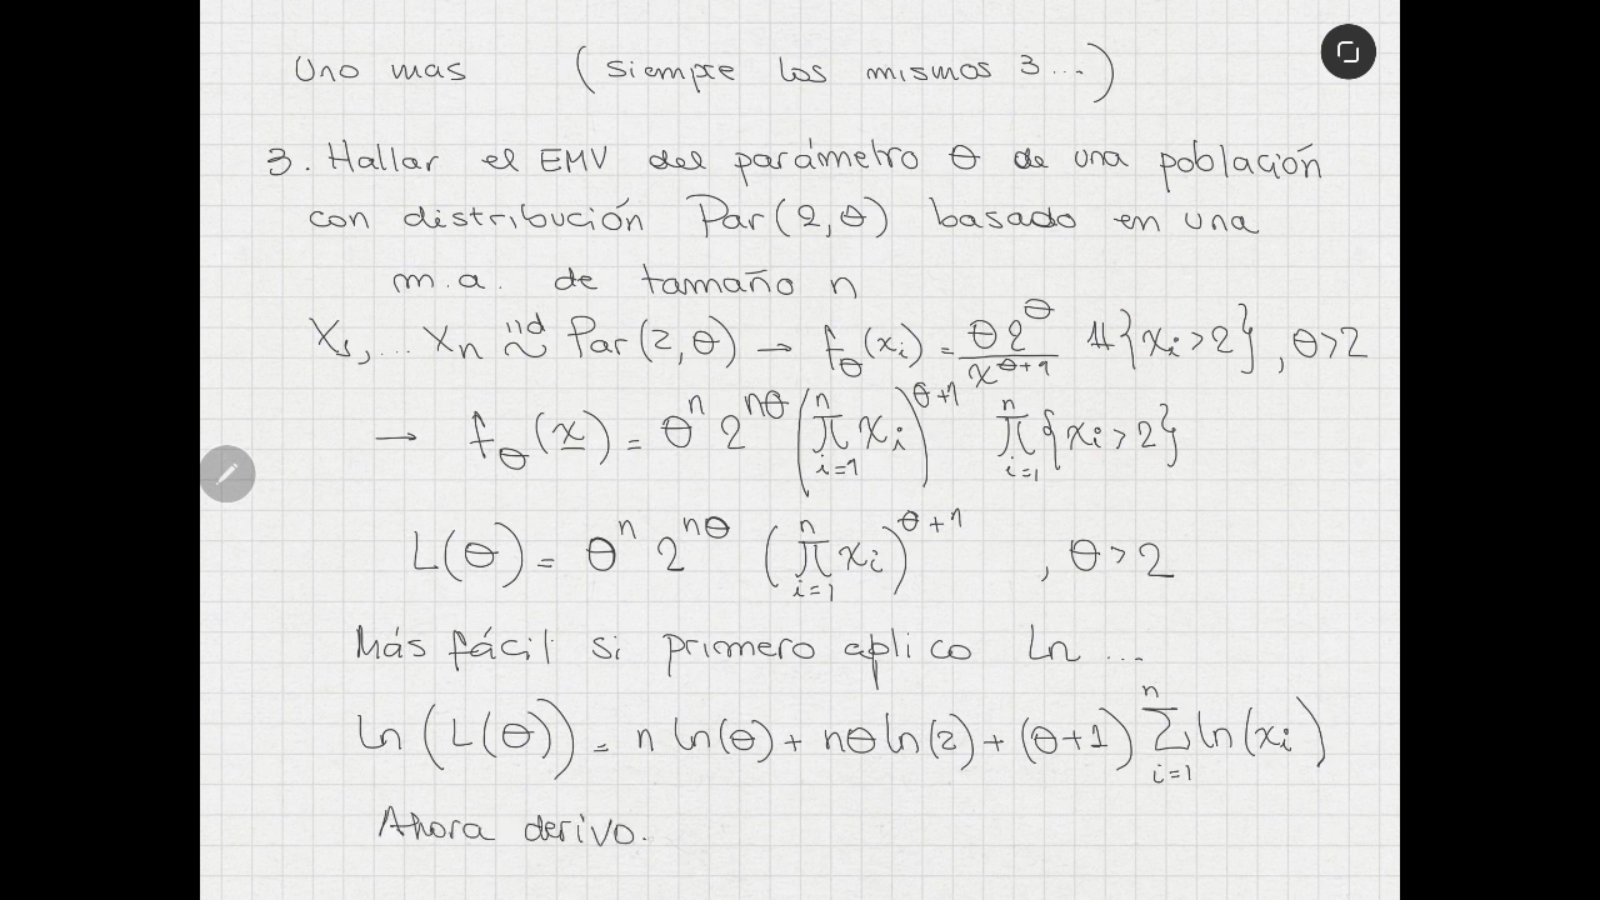 Uno mas (siempre los mismos 3...)
3. Hallar el EMV del parámetro θ de una población
con distribución Par(2,θ) basado en una
m.a. de tamaño n
X₁,... Xn iid ~ Par(2,θ) → f_θ(xi) = θ2^θ / x^(θ+1) 1{xi>2}, θ>2
→ f_θ(x) = θ^n 2^(nθ) (∏_{i=1}^n xi)^(θ+1) ∏_{i=1}^n {xi>2}
L(θ) = θ^n 2^(nθ) (∏_{i=1}^n xi)^(θ+1) , θ>2
Más fácil si primero aplico Ln ...
Ln(L(θ)) = n ln(θ) + nθ ln(2) + (θ+1) ∑_{i=1}^n ln(xi)
Ahora derivo.